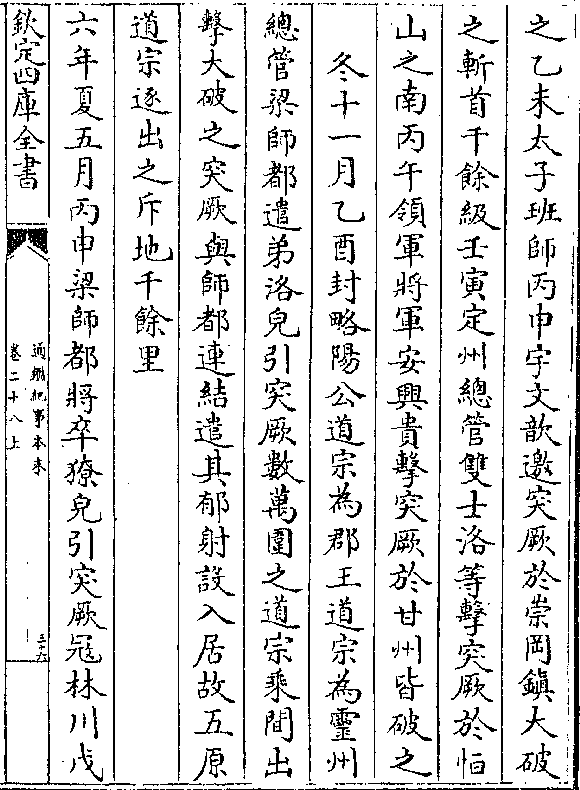 之乙未太子班師丙申宇文歆邀突厥於崇岡鎮大破
之斬首千餘級壬寅定州總管雙士洛等擊突厥於恒
山之南丙午領軍將軍安興貴擊突厥於甘州皆破之
冬十一月乙酉封略陽公道宗為郡王道宗為靈州
總管梁師都遣弟洛兒引突厥數萬圍之道宗乘間出
擊大破之突厥與師都連結遣其郁射設入居故五原
道宗逐出之斥地千餘里
六年夏五月丙申梁師都將卒獠兒引突厥冦林川戊
欽定四庫全書
通鑑紀事本末
卷二十八上
三十六